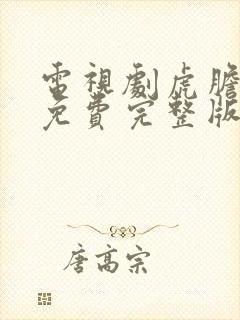 電視劇虎膽
免費完整版
唐高宗